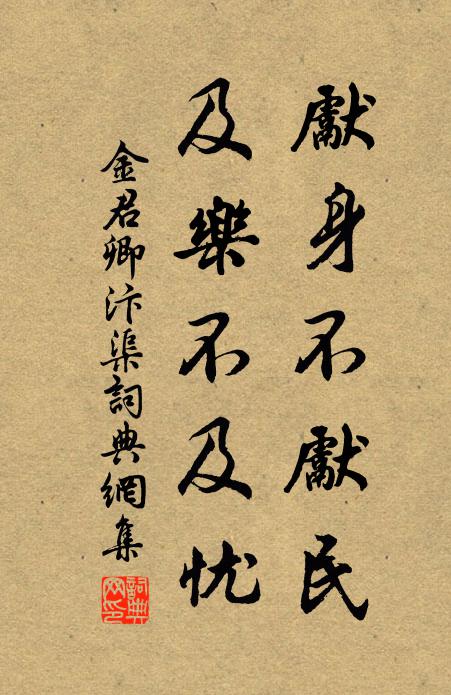 獻身不獻民
及樂不及忧
金君卿汴渠詞典網集
詞典網印